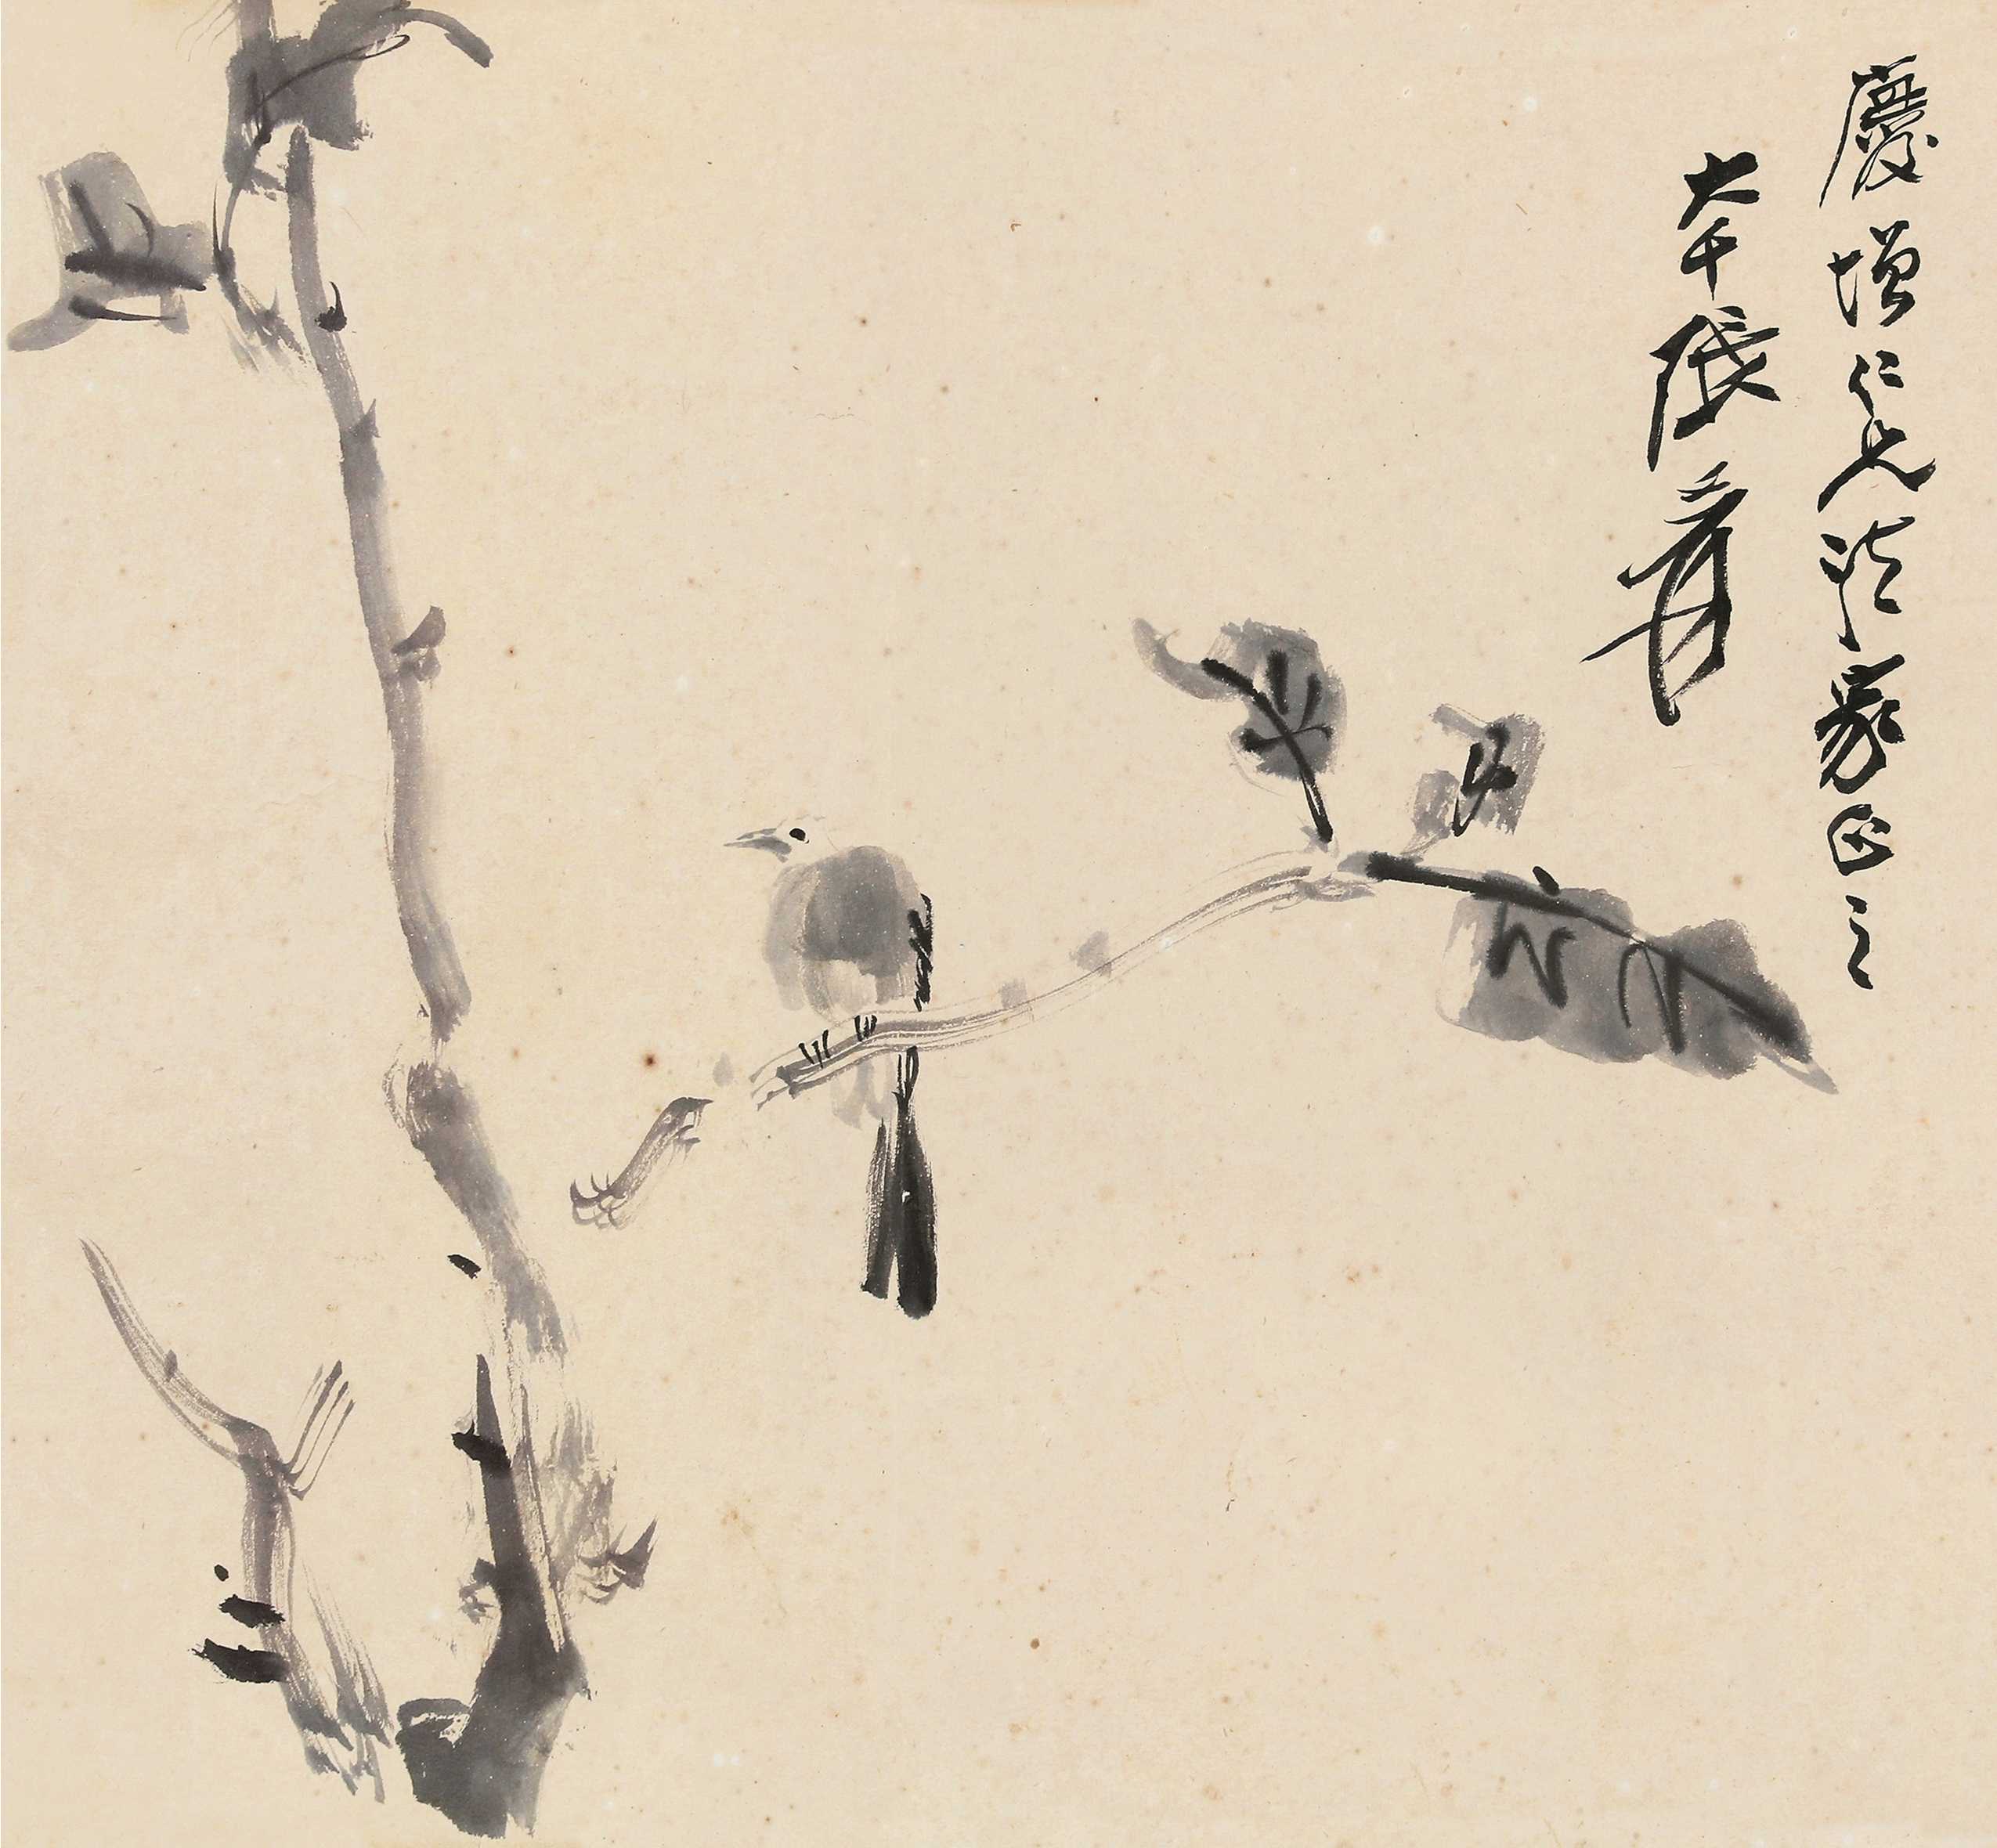 慶增仁兄法家正之
大千張爰